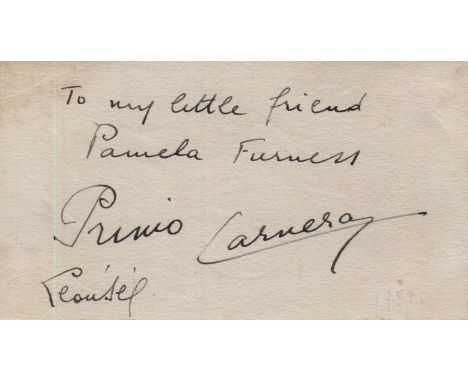 To my little friend
Pamela Furness
Primo Carnera